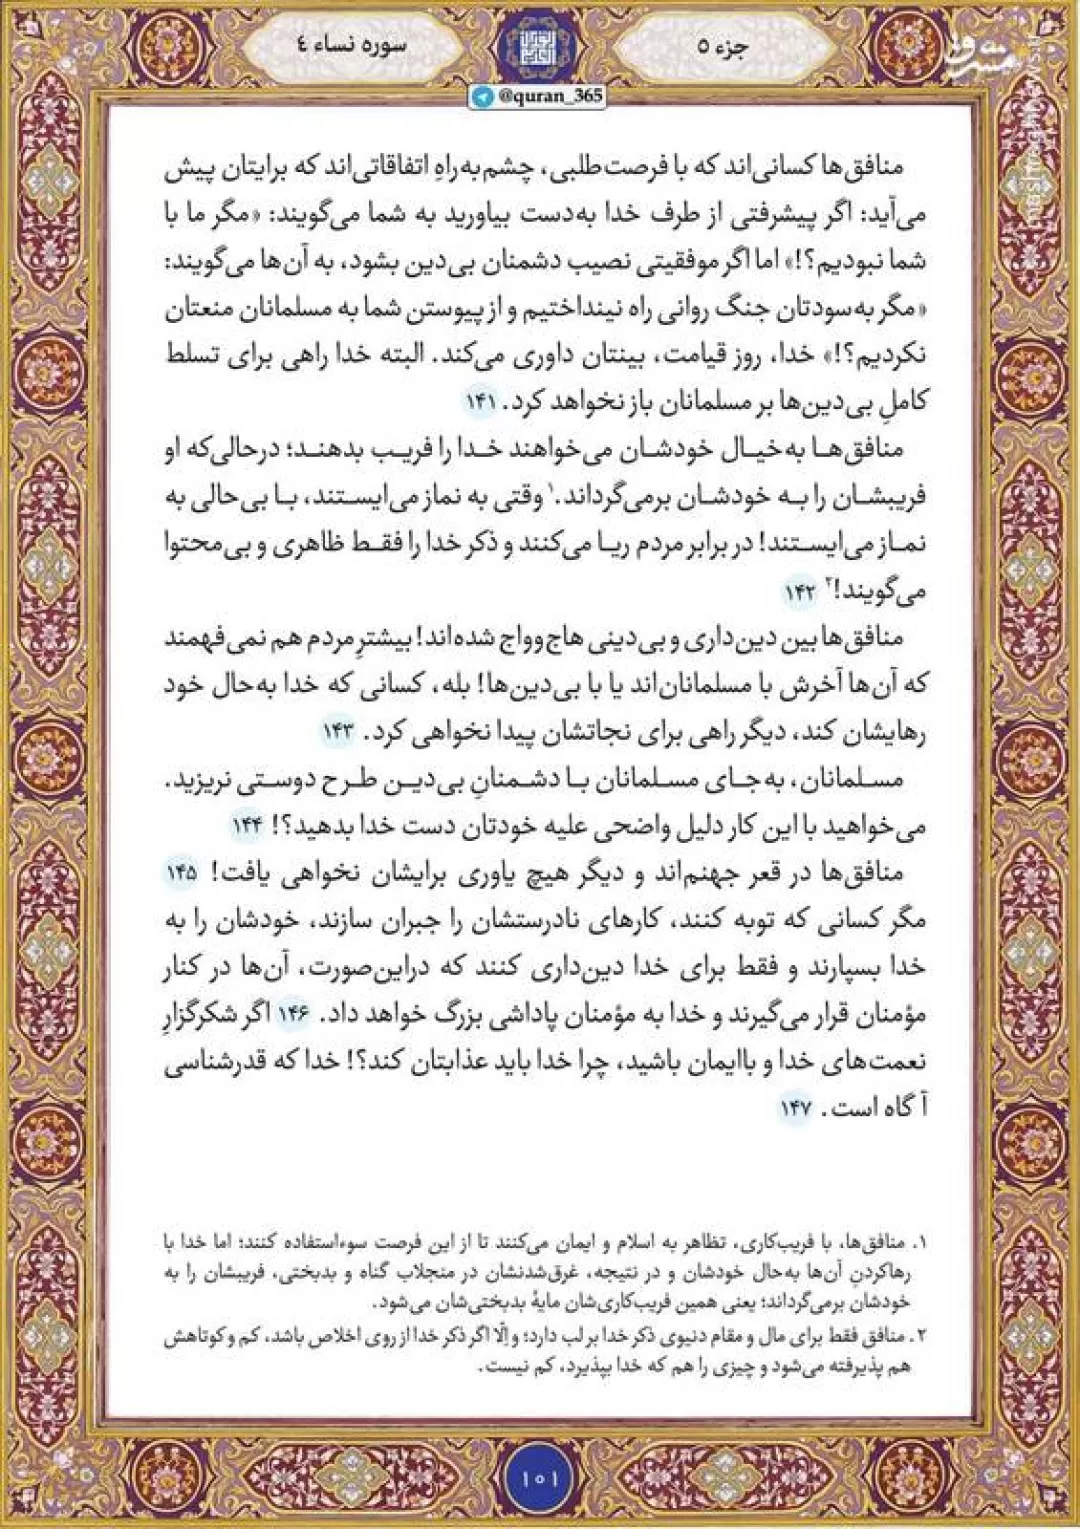 جزء ۵
سوره نساء ۴
@quran_365
منافق‌ها کسانی‌اند که با فرصت‌طلبی، چشم‌به‌راهِ اتفاقاتی‌اند که برایتان پیش
می‌آید: اگر پیشرفتی از طرف خدا به‌دست بیاورید به شما می‌گویند: «مگر ما با
شما نبودیم؟!» اما اگر موفقیتی نصیب دشمنان بی‌دین بشود، به آن‌ها می‌گویند:
«مگر به‌سودتان جنگ روانی راه نینداختیم و از پیوستن شما به مسلمانان منعتان
نکردیم؟!» خدا، روز قیامت، بینتان داوری می‌کند. البته خدا راهی برای تسلط
کاملِ بی‌دین‌ها بر مسلمانان باز نخواهد کرد. ۱۴۱
منافق‌هـا به‌خیـال خودشـان می‌خواهند خـدا را فریـب بدهنـد؛ درحالی‌که او
فریبشـان را بـه خودشـان برمی‌گرداند.۱ وقتی به نماز می‌ایسـتند، بـا بی‌حالی به
نمـاز می‌ایسـتند! در برابر مردم ریـا می‌کنند و ذکر خدا را فقـط ظاهری و بی‌محتوا
می‌گویند!۲ ۱۴۲
منافق‌ها بین دین‌داری و بی‌دینی هاج‌وواج شده‌اند! بیشترِ مردم هم نمی‌فهمند
که آن‌ها آخرش با مسلمانان‌اند یا با بی‌دین‌ها! بله، کسانی که خدا به‌حال خود
رهایشان کند، دیگر راهی برای نجاتشان پیدا نخواهی کرد. ۱۴۳
مسـلمانان، به‌جـای مسـلمانان بـا دشـمنانِ بی‌دیـن طـرح دوسـتی نریزید.
می‌خواهید با این کار دلیل واضحی علیه خودتان دست خدا بدهید؟! ۱۴۴
منافق‌ها در قعر جهنم‌اند و دیگر هیچ یاوری برایشان نخواهی یافت! ۱۴۵
مگر کسانی که توبه کنند، کارهای نادرستشان را جبران سازند، خودشان را به
خدا بسپارند و فقط برای خدا دین‌داری کنند که دراین‌صورت، آن‌ها در کنار
مؤمنان قرار می‌گیرند و خدا به مؤمنان پاداشی بزرگ خواهد داد. ۱۴۶ اگر شکرگزارِ
نعمت‌های خدا و باایمان باشید، چرا خدا باید عذابتان کند؟! خدا که قدرشناسی
آگاه است. ۱۴۷
۱. منافق‌ها، با فریب‌کاری، تظاهر به اسلام و ایمان می‌کنند تا از این فرصت سوءاستفاده کنند؛ اما خدا با
رهاکردنِ آن‌ها به‌حال خودشان و در نتیجه، غرق‌شدنشان در منجلاب گناه و بدبختی، فریبشان را به
خودشان برمی‌گرداند؛ یعنی همین فریب‌کاری‌شان مایهٔ بدبختی‌شان می‌شود.
۲. منافق فقط برای مال و مقام دنیوی ذکر خدا بر لب دارد؛ و اِلّا اگر ذکر خدا از روی اخلاص باشد، کم و کوتاهش
هم پذیرفته می‌شود و چیزی را هم که خدا بپذیرد، کم نیست.
۱۰۱